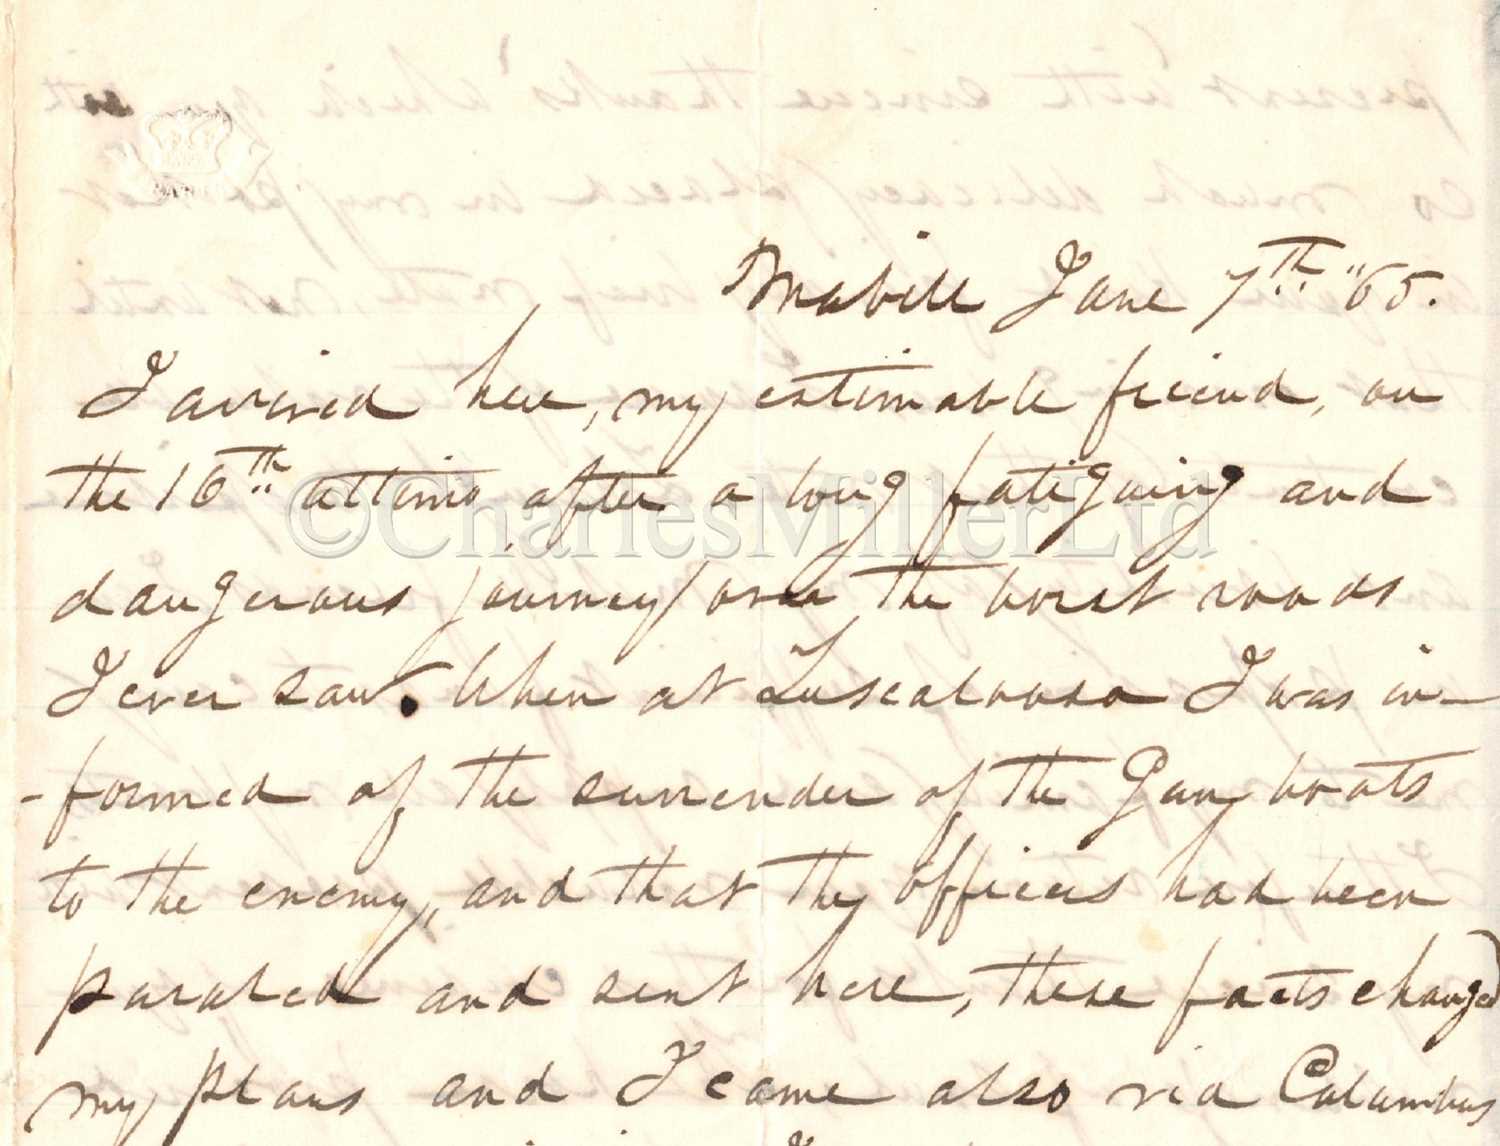 Mobile June 7th '65.
I arrived here, my estimable friend, on
the 16th ultimo after a long fatiguing and
dangerous journey over the worst roads
I ever saw. When at Tuscaloosa I was in-
-formed of the surrender of the Gun boats
to the enemy, and that the officers had been
paroled and sent here, these facts changed
my plans and I came also via Columbus
©CharlesMillerLtd